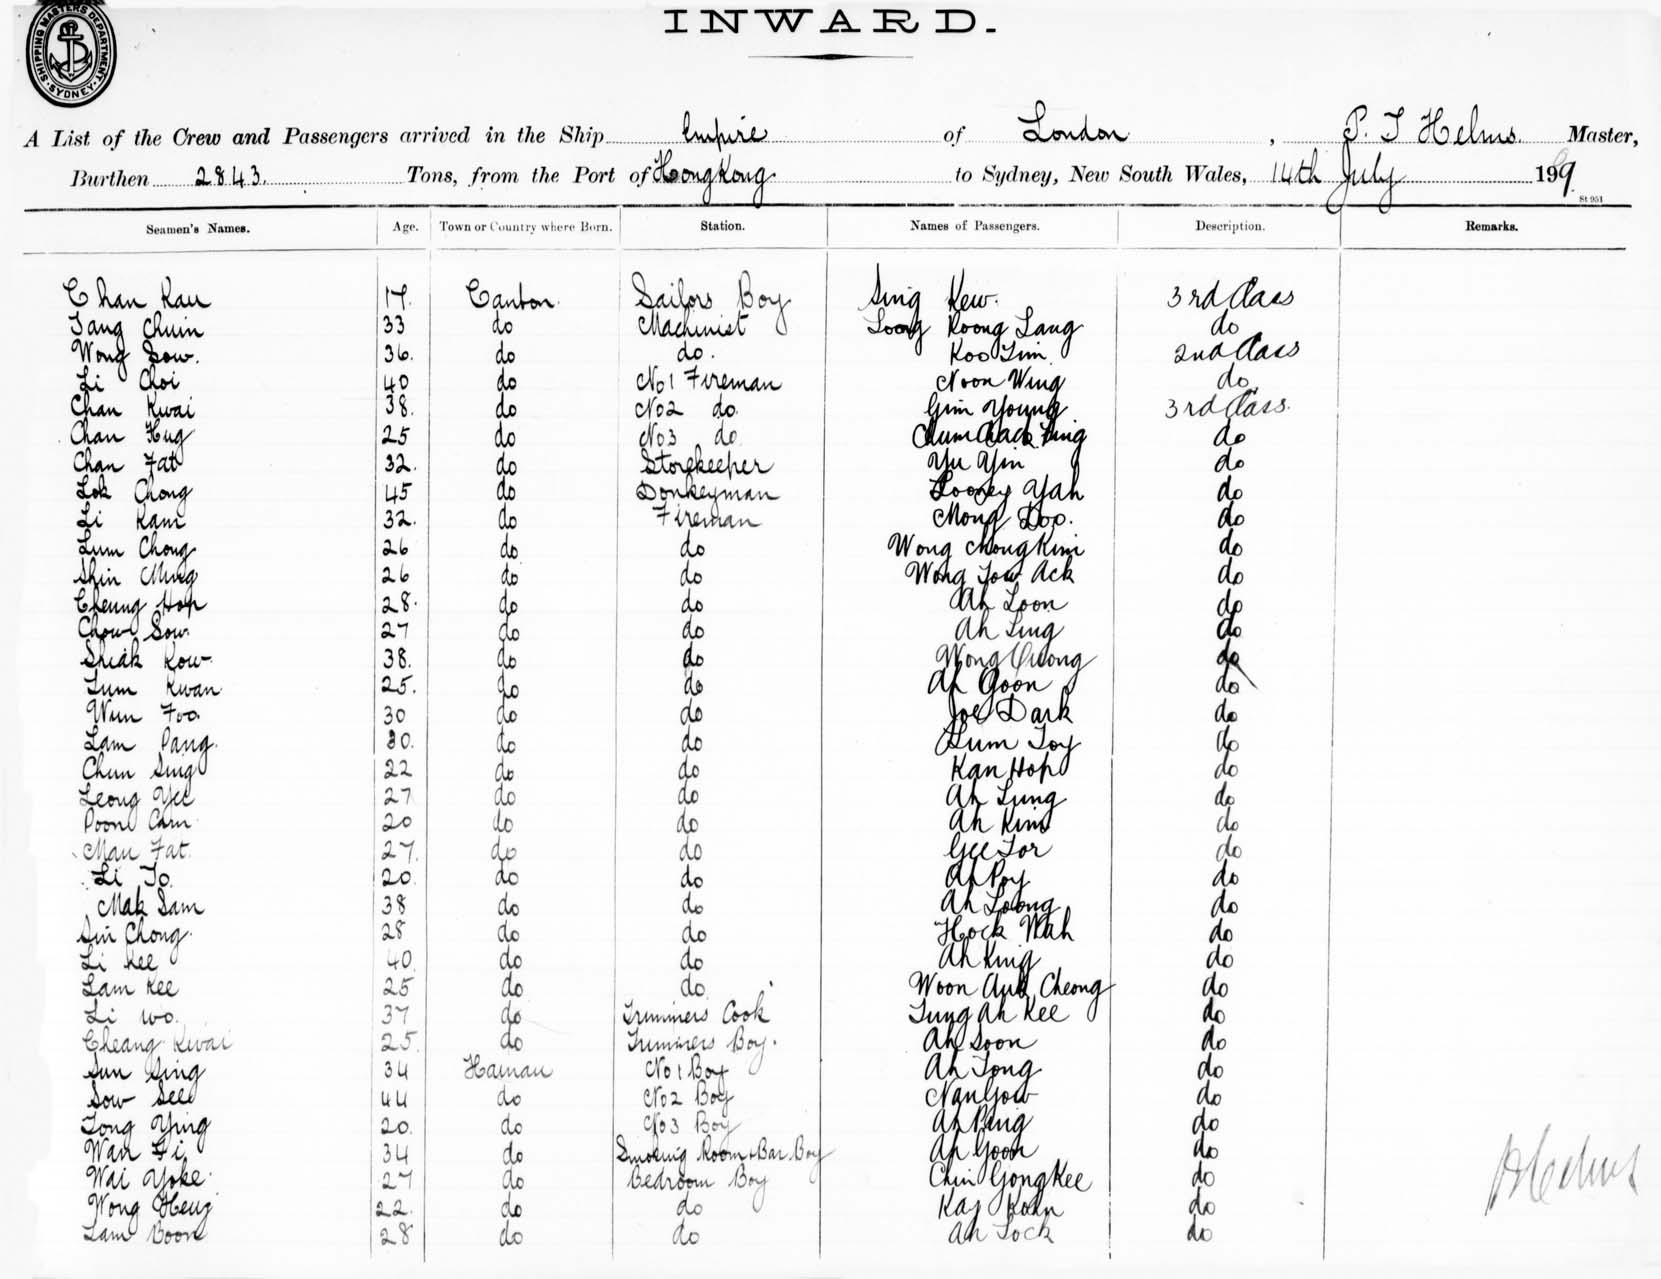 SHIPPING MASTERS DEPARTMENT. SYDNEY.
INWARD.
A List of the Crew and Passengers arrived in the Ship Empire of London, P. T Helms. Master,
Burthen 2843. Tons, from the Port of HongKong to Sydney, New South Wales, 14th July 199
St 951
Seamen's Names. Age. Town or Country where Born. Station. Names of Passengers. Description. Remarks.
Chan Kau 17. Canton. Sailors Boy Sing Kew. 3rd Class
Tang Chuin 33 do Machinist Loong Koong Lang do
Wong Sow. 36. do do. Koo Tim. 2nd Class
Li Choi 40 do No1 Fireman Noon Wing do
Chan Kwai 38. do No2 do. Gim Young 3rd Class.
Chan Hug 25 do No3 do Chum do
Chan Fat 32. do Storekeeper Yu Yin do
Lok Chong 45 do Donkeyman Looney Yah do
Li Kam 32. do Fireman Mong Doo. do
Lum Chong 26 do do Wong Chong Kimi do
Shin Ming 26 do do Wong Tow Ack do
Cheung Hop 28. do do Ah Loon do
Chow Sow. 27 do do Ah Ling do
Shiak Kow. 38. do do Wong Quong do
Tum Kwan 25. do do Ah Goon do
Wun Foo. 30 do do Joe Dark do
Lam Pang. 30. do do Lum Toy do
Chun Sing 22 do do Kan Hop do
Leong Yee 27 do do Ah Lung do
Poon Cam 20 do do Ah Kim do
Mau Fat. 27. do do Gee Tor do
Li To. 20. do do Ah Poy do
Mak Sam 38 do do Ah Loong do
Sin Chong. 28 do do Hock Wah do
Li Kee 40. do do Ah King do
Lam Kee 25 do do. Woon Cheong do
Li Wo. 37 do Trimmers Cook Tung Ah Kee do
Cheang Kwai 25. do Trimmers Boy. Ah Soon do
Sun Sing 34 Hainan No1 Boy Ah Tong do
Sow See 44 do No2 Boy Nan Gow do
Tong Ying 20. do No3 Boy Ah Ping do
Wan Fi 34 do Smoking Room & Bar Boy Ah Goon do
Wai Yoke. 27 do Bedroom Boy Chin Gong Kee do
Wong Heng 22. do do Kay do
Lam Boon 28 do do Ah Lock do
Helms